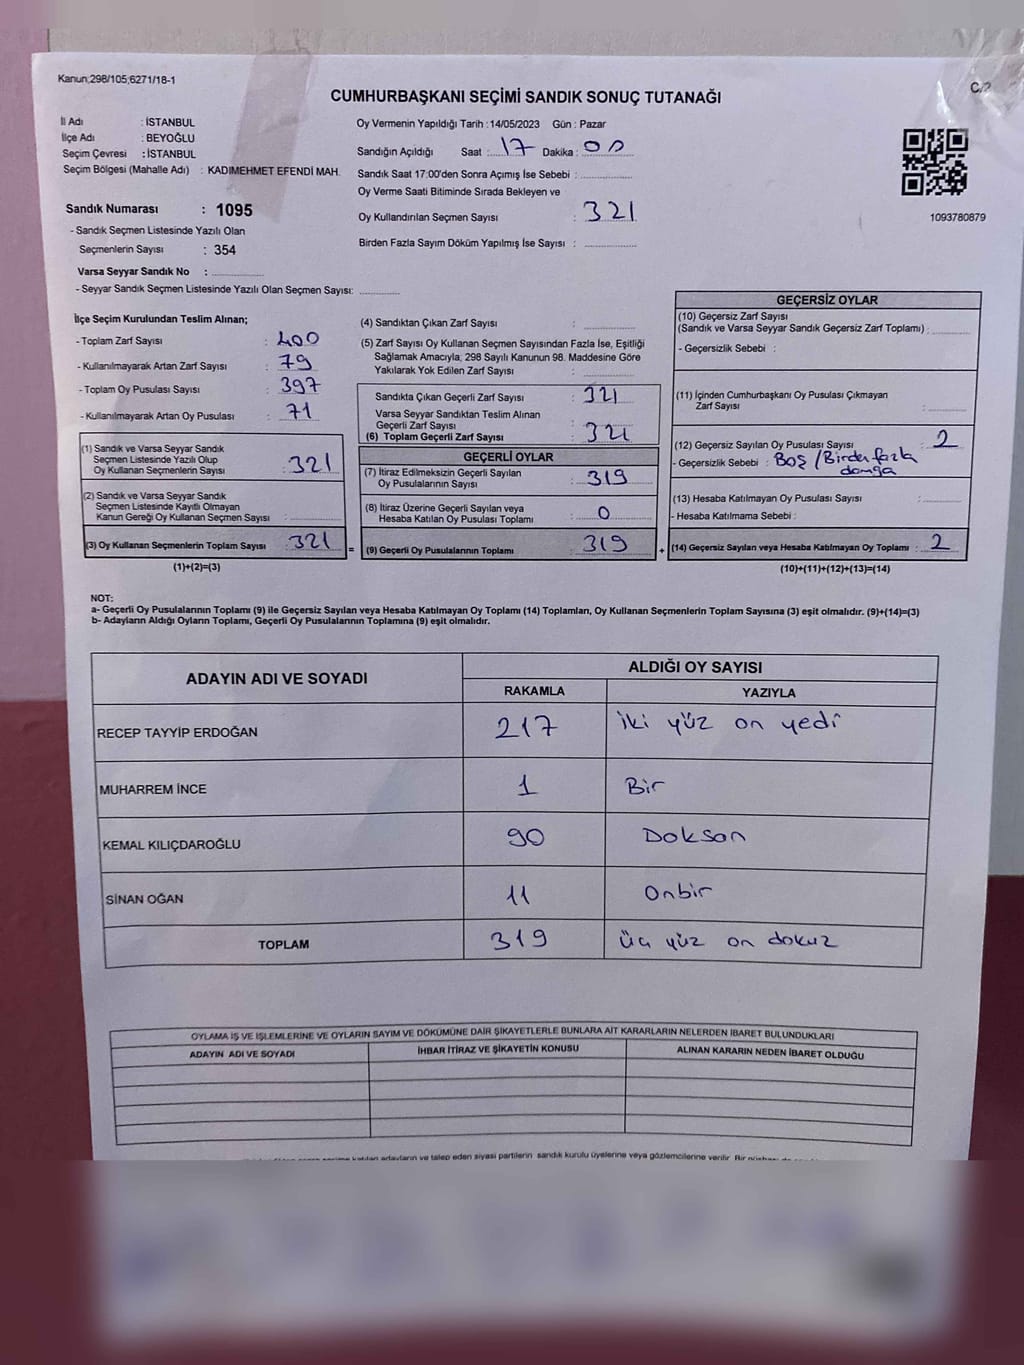 Kanun;298/105;6271/18-1
C/2
CUMHURBAŞKANI SEÇİMİ SANDIK SONUÇ TUTANAĞI
İl Adı : İSTANBUL
İlçe Adı : BEYOĞLU
Seçim Çevresi : İSTANBUL
Seçim Bölgesi (Mahalle Adı) : KADIMEHMET EFENDİ MAH.
Sandık Numarası : 1095
- Sandık Seçmen Listesinde Yazılı Olan
Seçmenlerin Sayısı : 354
Varsa Seyyar Sandık No :
- Seyyar Sandık Seçmen Listesinde Yazılı Olan Seçmen Sayısı:
Oy Vermenin Yapıldığı Tarih : 14/05/2023 Gün : Pazar
Sandığın Açıldığı Saat : 17 Dakika : 00
Sandık Saat 17:00'den Sonra Açımış İse Sebebi :
Oy Verme Saati Bitiminde Sırada Bekleyen ve
Oy Kullandırılan Seçmen Sayısı : 321
Birden Fazla Sayım Döküm Yapılmış İse Sayısı :
1093780879
İlçe Seçim Kurulundan Teslim Alınan;
- Toplam Zarf Sayısı : 400
- Kullanılmayarak Artan Zarf Sayısı : 79
- Toplam Oy Pusulası Sayısı : 397
- Kullanılmayarak Artan Oy Pusulası : 71
(1) Sandık ve Varsa Seyyar Sandık
Seçmen Listesinde Yazılı Olup
Oy Kullanan Seçmenlerin Sayısı : 321
(2) Sandık ve Varsa Seyyar Sandık
Seçmen Listesinde Kayıtlı Olmayan
Kanun Gereği Oy Kullanan Seçmen Sayısı :
(3) Oy Kullanan Seçmenlerin Toplam Sayısı : 321 =
(1)+(2)=(3)
(4) Sandıktan Çıkan Zarf Sayısı :
(5) Zarf Sayısı Oy Kullanan Seçmen Sayısından Fazla İse, Eşitliği
Sağlamak Amacıyla, 298 Sayılı Kanunun 98. Maddesine Göre
Yakılarak Yok Edilen Zarf Sayısı :
Sandıkta Çıkan Geçerli Zarf Sayısı : 321
Varsa Seyyar Sandıktan Teslim Alınan
Geçerli Zarf Sayısı :
(6) Toplam Geçerli Zarf Sayısı : 321
GEÇERLİ OYLAR
(7) İtiraz Edilmeksizin Geçerli Sayılan
Oy Pusulalarının Sayısı : 319
(8) İtiraz Üzerine Geçerli Sayılan veya
Hesaba Katılan Oy Pusulası Toplamı : 0
(9) Geçerli Oy Pusulalarının Toplamı : 319 +
GEÇERSİZ OYLAR
(10) Geçersiz Zarf Sayısı
(Sandık ve Varsa Seyyar Sandık Geçersiz Zarf Toplamı) :
- Geçersizlik Sebebi :
(11) İçinden Cumhurbaşkanı Oy Pusulası Çıkmayan
Zarf Sayısı :
(12) Geçersiz Sayılan Oy Pusulası Sayısı : 2
- Geçersizlik Sebebi : Boş / Birden fazla
damga
(13) Hesaba Katılmayan Oy Pusulası Sayısı :
- Hesaba Katılmama Sebebi :
(14) Geçersiz Sayılan veya Hesaba Katılmayan Oy Toplamı : 2
(10)+(11)+(12)+(13)=(14)
NOT:
a- Geçerli Oy Pusulalarının Toplamı (9) ile Geçersiz Sayılan veya Hesaba Katılmayan Oy Toplamı (14) Toplamları, Oy Kullanan Seçmenlerin Toplam Sayısına (3) eşit olmalıdır. (9)+(14)=(3)
b- Adayların Aldığı Oyların Toplamı, Geçerli Oy Pusulalarının Toplamına (9) eşit olmalıdır.
ADAYIN ADI VE SOYADI
ALDIĞI OY SAYISI
RAKAMLA YAZIYLA
RECEP TAYYİP ERDOĞAN 217 iki yüz on yedi
MUHARREM İNCE 1 Bir
KEMAL KILIÇDAROĞLU 90 Doksan
SİNAN OĞAN 11 Onbir
TOPLAM 319 üç yüz on dokuz
OYLAMA İŞ VE İŞLEMLERİNE VE OYLARIN SAYIM VE DÖKÜMÜNE DAİR ŞİKAYETLERLE BUNLARA AİT KARARLARIN NELERDEN İBARET BULUNDUKLARI
ADAYIN ADI VE SOYADI İHBAR İTİRAZ VE ŞİKAYETİN KONUSU ALINAN KARARIN NEDEN İBARET OLDUĞU
katılan adayların ve talep eden siyasi partilerin sandık kurulu üyelerine veya gözlemcilerine verilir. Bir